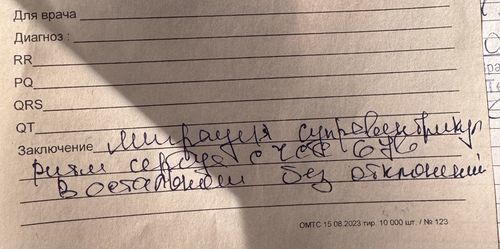 Для врача
Диагноз :
RR
PQ
QRS
QT
Заключение миграция суправентрикул
ритм сердца с чсс 67 б
В остальном без отклонений
ОМТС 15 08.2023 тир. 10 000 шт. / № 123